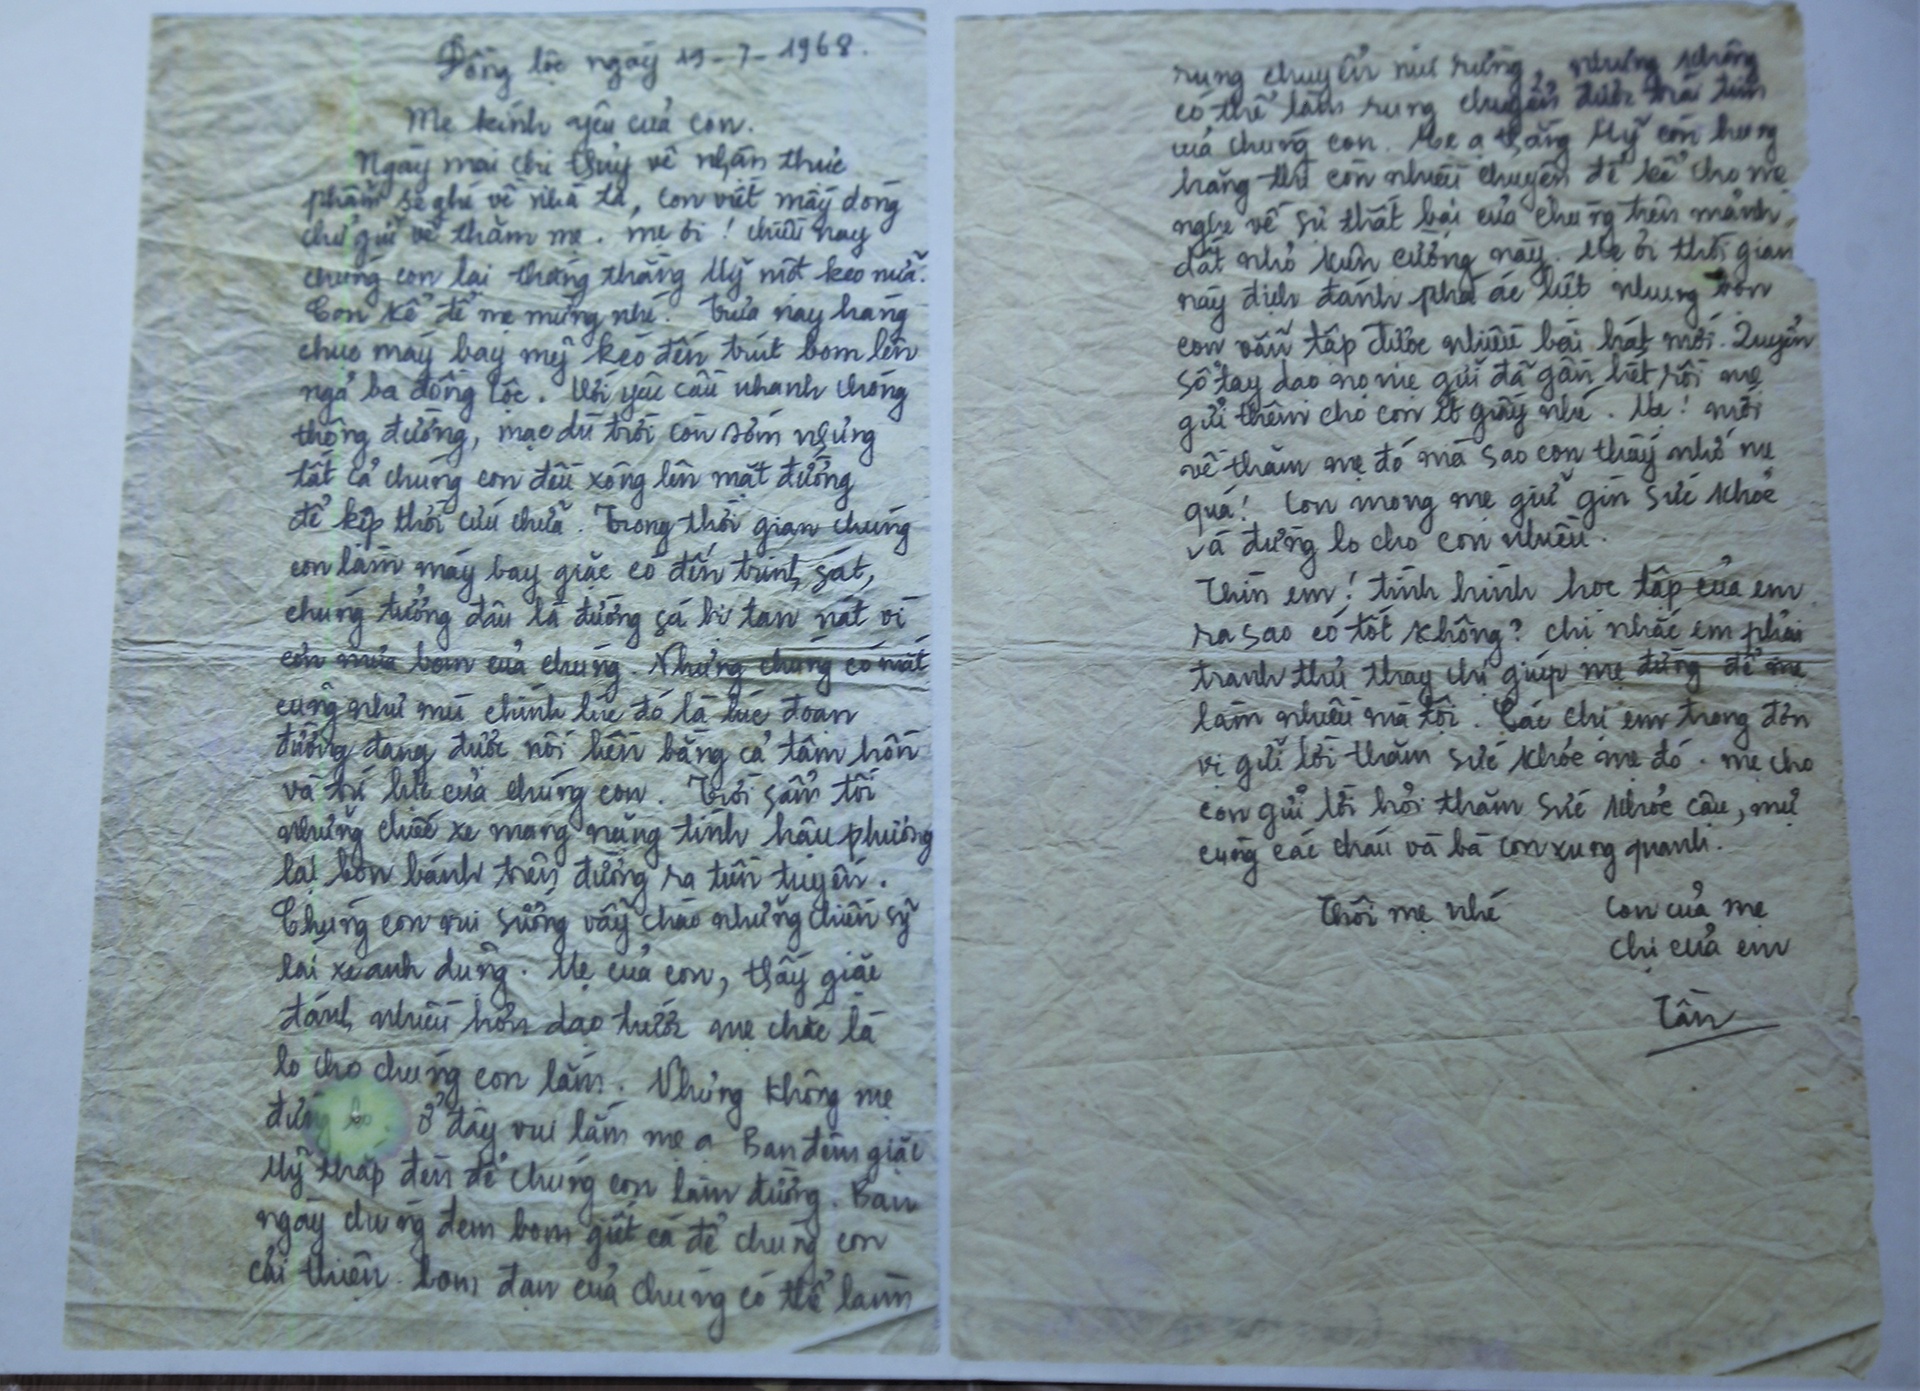 Đồng lộc ngày 19-7-1968.
Mẹ kính yêu của con.
Ngày mai chị Thủy về nhận thực
phẩm sẽ ghé về nhà ta, con viết mấy dòng
chữ gửi về thăm mẹ. mẹ ơi! chiều nay
chúng con lại thắng thằng Mỹ một keo nữa.
Con kể để mẹ mừng nhé. Trưa nay hàng
chục máy bay mỹ kéo đến trút bom lên
ngả ba đồng lộc. Với yêu cầu nhanh chóng
thông đường, mặc dù trời còn sớm nhưng
tất cả chúng con đều xông lên mặt đường
để kịp thời cứu chữa. Trong thời gian chúng
con làm máy bay giặc có đến trinh sát,
chúng tưởng đâu là đường sá bị tan nát vì
cơn mưa bom của chúng. Nhưng chúng có mắt
cũng như mù chính lúc đó là lúc đoạn
đường đang được nối liền bằng cả tâm hồn
và trí lực của chúng con. Trời sẩm tối
những chiếc xe mang nặng tình hậu phương
lại bon bánh trên đường ra tiền tuyến.
Chúng con vui sướng vẫy chào những chiến sỹ
lái xe anh dũng. Mẹ của con, thấy giặc
đánh nhiều hơn dạo trước mẹ chắc là
lo cho chúng con lắm. Nhưng không mẹ
đừng lo ở đây vui lắm mẹ ạ Ban đêm giặc
Mỹ thắp đèn để chúng con làm đường. Ban
ngày chúng đem bom giết cá để chúng con
cải thiện. bom đạn của chúng có thể làm
rung chuyển núi rừng, nhưng không
có thể làm rung chuyển được trái tim
của chúng con. Mẹ ạ thằng Mỹ còn hung
hăng thì còn nhiều chuyện để kể cho mẹ
nghe về sự thất bại của chúng trên mảnh
đất nhỏ kiên cường này. Mẹ ơi thời gian
này địch đánh phá ác liệt nhưng bọn
con vẫn tập được nhiều bài hát mới. Quyển
sổ tay dạo nọ mẹ gửi đã gần hết rồi mẹ
gửi thêm cho con ít giấy nhé. Mẹ! mới
về thăm mẹ đó mà sao con thấy nhớ mẹ
quá! Con mong mẹ giữ gìn sức khỏe
và đừng lo cho con nhiều.
Thìn em! tình hình học tập của em
ra sao có tốt không? chị nhắc em phải
tranh thủ thay chị giúp mẹ đừng để mẹ
làm nhiều mà tội. Các chị em trong đơn
vị gửi lời thăm sức khỏe mẹ đó. mẹ cho
con gửi lời hỏi thăm sức khỏe cậu, mự
cùng các cháu và bà con xung quanh.
Thôi mẹ nhé
Con của mẹ
chị của em
Tần